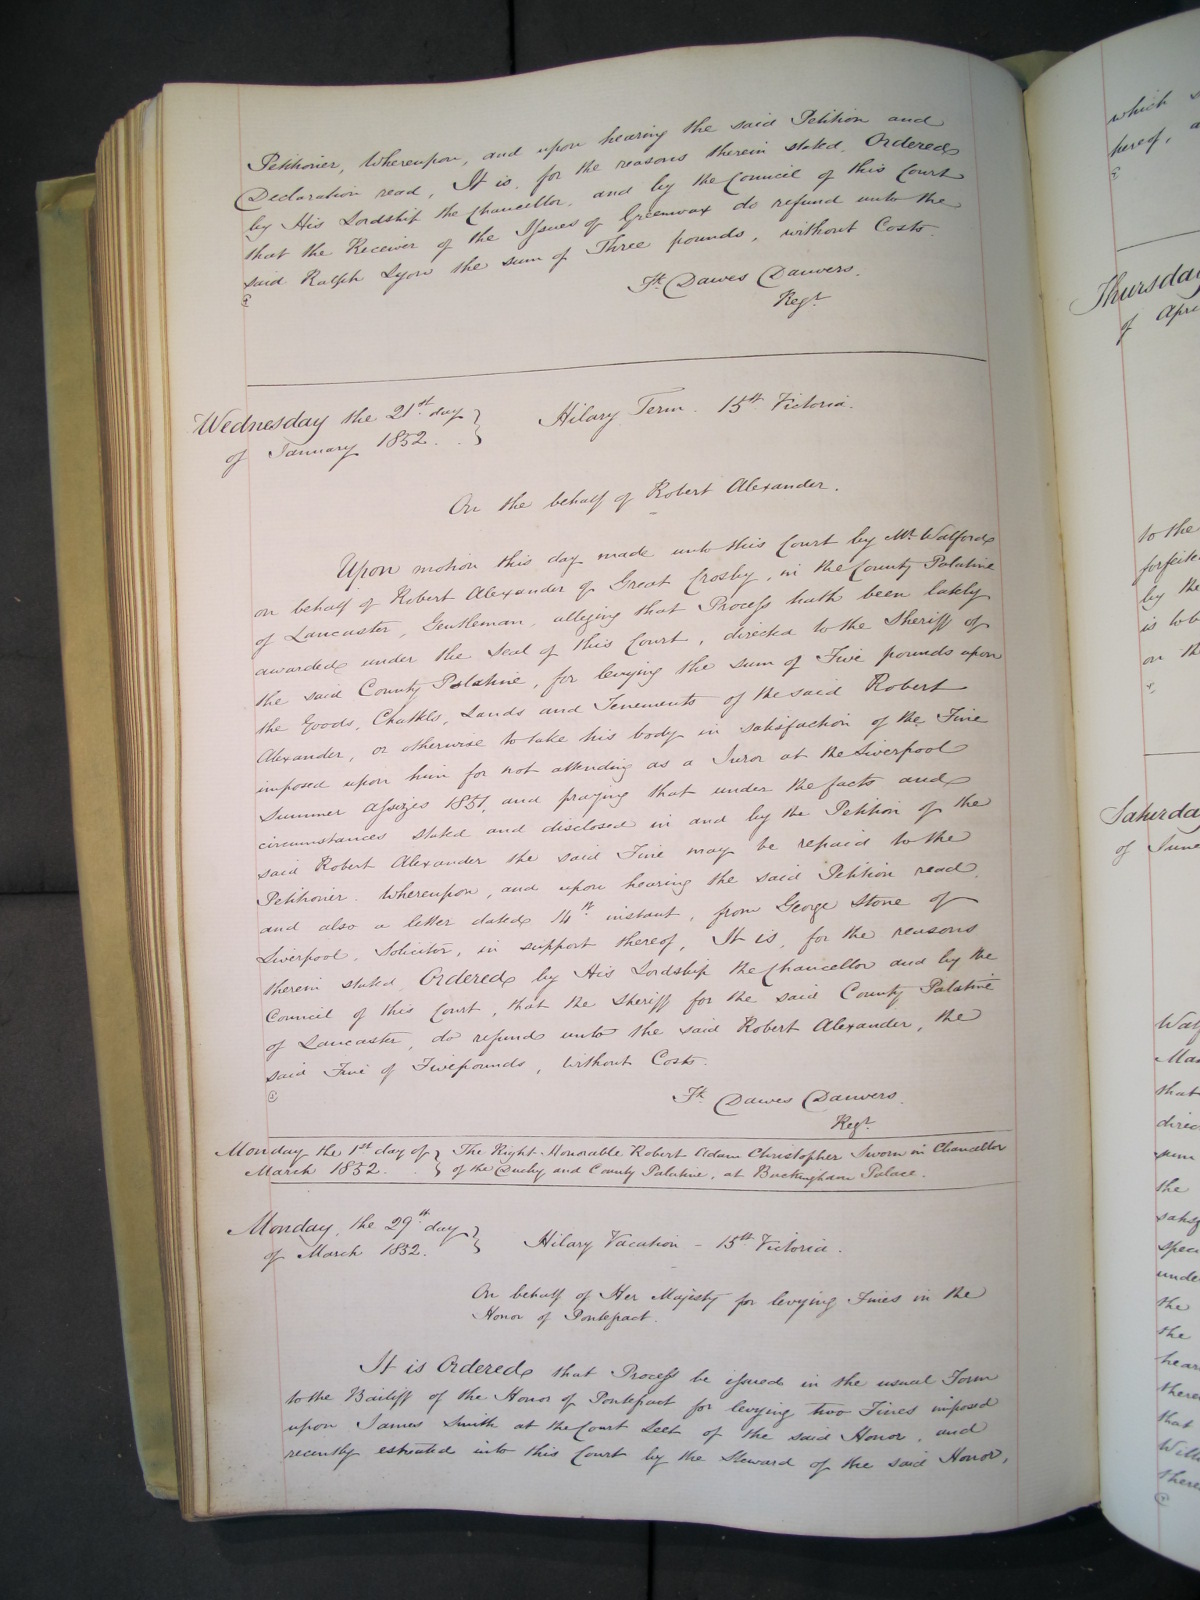 Petitioner, Whereupon, and upon hearing the said Petition and
Declaration read, It is, for the reasons therein stated, Ordered
by His Lordship the Chancellor, and by the Council of this Court
that the Receiver of the Issues of Greenwax do refund unto the
said Ralph Lyon the sum of Three pounds, without Costs.
Fk. Dawes Danvers.
Regr.
Wednesday the 21st day
of January 1852.
Hilary Term. 15th Victoria.
On the behalf of Robert Alexander.
Upon motion this day made unto this Court by Mr. Walford
on behalf of Robert Alexander of Great Crosby, in the County Palatine
of Lancaster, Gentleman, alleging that Process hath been lately
awarded under the Seal of this Court, directed to the Sheriff of
the said County Palatine, for levying the sum of Five pounds upon
the Goods, Chattels, Lands and Tenements of the said Robert
Alexander, or otherwise to take his body in satisfaction of the Fine
imposed upon him for not attending as a Juror at the Liverpool
Summer Assizes 1851, and praying that under the facts and
circumstances stated and disclosed in and by the Petition of the
said Robert Alexander the said Fine may be repaid to the
Petitioner. Whereupon, and upon hearing the said Petition read,
and also a letter dated 14th instant, from George Stone of
Liverpool, Solicitor, in support thereof, It is, for the reasons
therein stated, Ordered by His Lordship the Chancellor and by the
Council of this Court, that the Sheriff for the said County Palatine
of Lancaster, do refund unto the said Robert Alexander, the
said Fine of Five pounds, without Costs.
Fk. Dawes Danvers.
Regr.
Monday the 1st day of
March 1852.
The Right Honorable Robert Adam Christopher Sworn in Chancellor
of the Duchy and County Palatine, at Buckingham Palace.
Monday, the 29th day
of March 1852.
Hilary Vacation - 15th Victoria.
On behalf of Her Majesty for levying Fines in the
Honor of Pontefract.
It is Ordered that Process be issued in the usual Form
to the Bailiff of the Honor of Pontefract for levying two Fines imposed
upon James Smith at the Court Leet of the said Honor, and
recently estreated into this Court by the Steward of the said Honor,
which
hereof,
Thursday
of
to the
by the
is
on
Saturday
of June
that
the
under
the
the
that